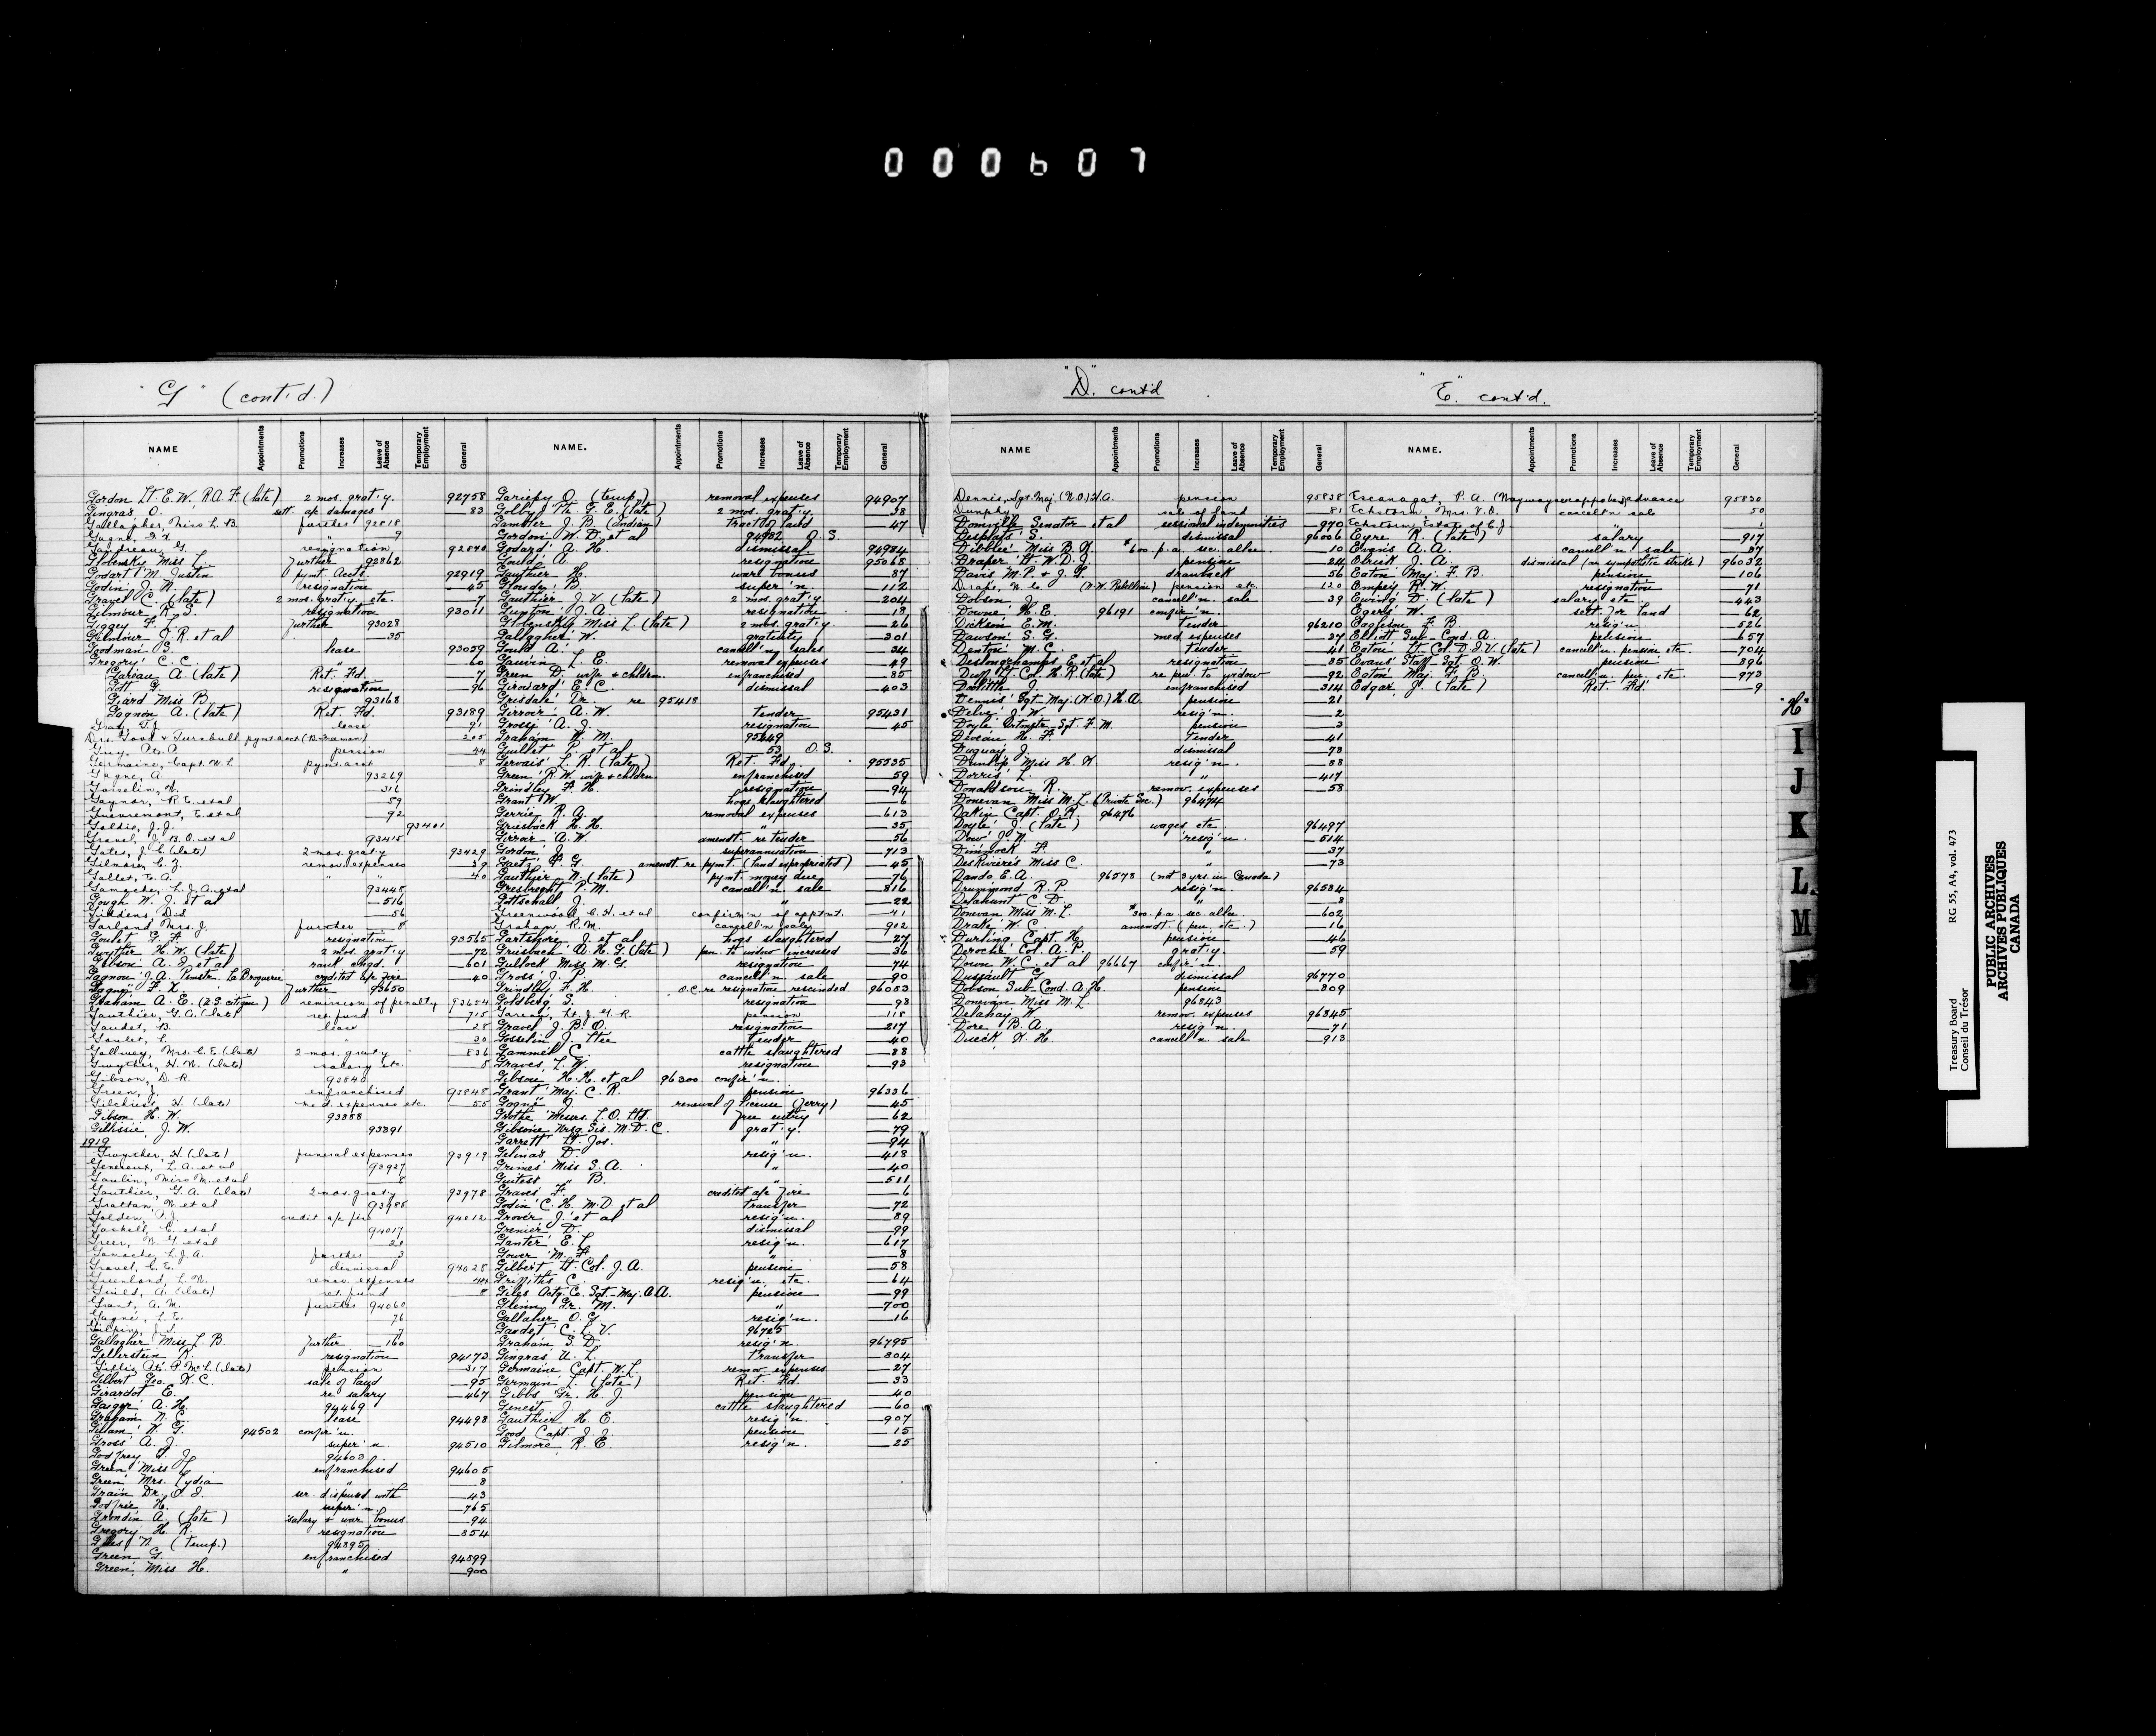 000607
"G" (cont'd.)
NAME Appointments Promotions Increases Leave of Absence Temporary Employment General
Gordon Lt. E. W. R.A.F. (late) 2 mos. grat'y. 92758
Gingras O. sett. a/c damages —83
Gallagher, Miss L. B. further 92818
Gagne, F. X. " 9
Gaudreau, G. resignation 92840
Globensky Miss L. further 92862
Godart M. Justin pymt. Accts. 92919
Godin J. N. resignation —45
Gravel C. (late) 2 mos. grat'y. etc. —7
Gilmour R. S. resignation 93011
Giggey F. L. further 93028
Gilmour J. R. et al —35
Goodman S. lease 93059
Gregory C. C. " —60
Gareau A. (late) Ret. Fd. —7
Gott G. resignation —96
Giard Miss B. 93168
Gagnon A. (late) Ret. Fd. 93189
Gray, T. J. lease 91
Drs. Good & Turnbull pymt acct 205
Guy, A. A. pension 44
Germaine, Capt. W. L. pymt. acct 8
Gagne, A. 93269
Gosselin, N. 316
Gaynor, R. E. et al 59
Guevremont, E. et al 92
Goldie, J. J. 93401
Gravel, J. B. O. et al 93415
Gates, J. C. (late) 2 mos. graty 93429
Gilmore, C. Z. remov. expenses 39
Gallet, E. A. " " 40
Gamache, L. J. A. et al 93448
Gough W. J. et al —516
Giddens, Did —56
Garland Mrs. J. further —8
Goulet G. F. resignation 93565
Gwyther H. W. (late) 2 mos. grat'y. —72
Gibson A. J. et al rank chgd. —601
Gagnon J. A. Pmstr. La Broquerie credited a/c fire —40
Gagne F. X. further 93650
Graham A. E. (U.S. citizen) remission of penalty 93654
Gauthier, G. A. (late) ret. fund 715
Gaudet, B. lease 28
Goulet, L. " 30
Gallwey, Mrs. C. E. (late) 2 mos. graty 836
Gwyther, H. W. (late) salary etc. 8
Gibson, D. R. 93840
Green, J. enfranchised 93848
Gilchrist, H. (late) med. expenses etc. 55
Gibson H. W. 93888
Gillissie J. W. 93891
1919
Gwyther, H. (late) funeral expenses 93919
Genereux, L. A. et al 93937
Gaulin, Miss M. et al 8
Gauthier, G. A. (late) 2 mos. graty 93978
Grattan, W. et al 93985
Golden, A. J. credit a/c fire 94012
Gaskell, C. et al 94017
Greer, W. G. et al 21
Gamache, L. J. A. further 3
Gravel, C. E. dismissal 94028
Greenland, L. N. remov. expenses 44
Guild, A. (late) ret. fund 8
Grant, A. M. further 94060
Gagné, L. E. 76
Gilpin, J. L. 7
Gallagher Miss L. B. further —160
Gillerstein R. resignation 94173
Gillis At. P. McL. (late) pension 317
Gilbert Geo. K.C. sale of land —95
Girardot E. re salary —467
Gaeger A. H. 94469
Graham N. C. lease 94498
Gillam W. G. 94502 confir'n.
Gross A. J. super'n. 94510
Godfrey S. J. 94603
Green Miss J. enfranchised 94605
Green Mrs. Lydia " —8
Grain Dr. O. I. ser. dispensed with —43
Godfree H. super'n. —765
Grondin A. (late) salary & war bonus —94
Gregory H. R. resignation —854
Giles N. (temp.) 94895
Green G. enfranchised 94899
Green Miss H. " —900
NAME. Appointments Promotions Increases Leave of Absence Temporary Employment General
Gariepy O. (temp) removal expenses 94907
Golby Pte. G. E. (late) 2 mos. grat'y. —38
Gambler J. B. (Indian) tract of land —47
Gordon W. D. et al 94982 O.S.
Godard A. H. dismissal 94984
Gould A. resignation 95068
Gauthier H. war bonus —87
Gowdy B. super'n. —112
Gauthier J. V. (late) 2 mos. grat'y. —204
Gunton J. A. resignation —18
Globensky Miss L. (late) 2 mos. grat'y. —26
Gallagher W. gratuity —301
Gould A. cancell'ng sales —34
Gauvin L. E. removal expenses —49
Green D. wife & childrn. enfranchised —85
Girouard E. C. dismissal —403
Grisdale Dr. re 95418
Girroir A. W. tender 95431
Grossi A. J. resignation —45
Graham W. M. 95449
Guillet P. et al 53 O.S.
Gervais L. R. (late) Ret. Fd. 95535
Green R. W. wife & children enfranchised —59
Grindley F. H. resignation —94
Grant W. hogs slaughtered —6
Gerrie R. A. removal expenses —613
Gruesbeck H. H. " —35
Girroir A. W. amendt. re tender —56
Gordon J. superannuation —713
Gaetz P. G. amendt. re pymt. (land expropriated) —45
Gauthier N. (late) pymt money due —76
Gresbrecht P. M. cancell'n sale —816
Gottschall J. " —22
Greenwood C. H. et al confirm'n of apptmt. 41
Graham, R. M. cancell'n sale 912
Gartshore J. et al hogs slaughtered —27
Griesbach A. H. G. (late) pen. to widow increased —36
Gullock Miss M. G. resignation —74
Gross J. P. cancell'n sale —90
Grindley F. H. O.C. re resignation rescinded 96083
Goldberg S. resignation —98
Gareau, Lt. J. G. R. pension —118
Gravel J. B. O. resignation —217
Gosselin J. Ltee tender —40
Gammel C. cattle slaughtered —88
Graves L. W. resignation —93
Gibson H. H. et al 96300 confir'n.
Grant Maj. C. R. pension 96336
Gagné J. renewal of license (ferry) —45
Grothe Messrs. L. O. Ltd. free entry —62
Gibsone Nrsg. Sis. M. D. C. grat'y. —79
Garrett Lt. Jos. " —94
Gelinas D. resig'n. —418
Grimes Miss S. A. " —40
Guitest " B. " —511
Graves F. credited a/c fire —6
Godin C. H. M.D. et al transfer —72
Grover J. et al resig'n. —89
Grenier D. dismissal —99
Ganter E. L. resig'n. —617
Gower M. F. " —8
Gilbert Lt. Col. J. A. pension —58
Griffiths C. resig'n. etc. —64
Giles Actg. C. Sgt.-Maj. A. A. pension —99
Glenn Gr. M. " —700
Gallaher O. G. resig'n. —16
Gaudet C. L. V. 96785
Graham S. D. resig'n. 96795
Gingras U. L. transfer —804
Germaine Capt. W. L. remov. expenses —27
Germain L. (late) Ret. Fd. —33
Gibbs Gr. H. J. pension —40
Genest J. cattle slaughtered —60
Gauthier H. E. resig'n. —907
Good Capt. J. J. pension —15
Gilmore R. E. resig'n. —25
"D." cont'd
NAME Appointments Promotions Increases Leave of Absence Temporary Employment General
Dennis, Sgt. Maj. (W.O.) H. A. pension 95838
Dunphy sale of land 81
Domville Senator et al sessional indemnities —970
Desplats S. dismissal 96006
Dibblee Miss B. X. $600. p.a. sec. allce. —10
Draper Lt. W. D. J. pension —24
Davis M. P. & J. T. drawback —56
(N.W. Rebellion) pension etc. 120
Dobson J. cancell'n. sale —39
Downe H. E. 96191 confir'n.
Dickson E. M. tender 96210
Dawson S. G. med. expenses —37
Denton M. C. tender —41
Deslongchamps E. et al resignation —85
Duff Lt. Col. H. R. (late) re pen. to widow —92
Doolittle J. enfranchised —314
Dennis Sgt.-Maj. (W.O.) H. A. pension —21
Delve J. W. resig'n. —2
Doyle Qrtmstr. Sgt. F. M. pension —3
Deveau H. F. tender —41
Duguay J. dismissal —78
Dunlop Miss H. K. resig'n. —88
Dorris L. " —417
Donaldson R. remov. expenses —58
Donevan Miss M. L. (Private Sec.) 96474
Dakin Capt. O. R. 96476
Doyle J. (late) wages etc. 96497
Dow J. N. resig'n. —514
Dimmock F. " —37
DesRivières Miss C. " —73
Dando E. A. 96578 (not 3 yrs. in Canada)
Drummond R. P. resig'n. 96584
Delahunt C. D. " —8
Donevan Miss M. L. $300. p.a. sec. allce. —602
Drake W. C. amendt (pen. etc.) —16
Durling Capt. H. pension —46
Deroche Col. A. P. grat'y. —59
Down W. C. et al 96667 confir'n.
Dussault G. dismissal 96770
Dobson Sub-Cond. A. H. pension —809
Donevan Miss M. L. 96843
Delahay W. remov. expenses 96845
Dore B. A. resig'n. —71
Dueck K. H. cancell'n. sale —913
"E." cont'd.
NAME. Appointments Promotions Increases Leave of Absence Temporary Employment General
Escanagat, P. A. advance 95830
Echstorm, Mrs. V. O. cancell'n sale 50
Echstorm, Estate of C. J. "
Eyre R. (late) salary —917
Evans A. A. cancell'n sale —87
Elrick J. A. dismissal (in sympathetic strike) 96032
Eaton Maj. F. B. pension —106
Empey R. W. resignation —71
Ewing D. (late) salary etc. —443
Egers W. sett. for land —62
Eaglesine F. B. resig'n. —526
Elliott Sub-Cond. A. pension —657
Eaton Lt. Col. D. I. V. (late) cancell'n. pension etc. —704
Evans Staff-Sgt. O. W. pension —896
Eaton Maj. F. B. cancell'n. pen. etc. —973
Edgar J. (late) Ret. Fd. —9
"H"
I
J
K
L
M
Treasury Board RG 55, A4, vol. 473
Conseil du Trésor
PUBLIC ARCHIVES
ARCHIVES PUBLIQUES
CANADA